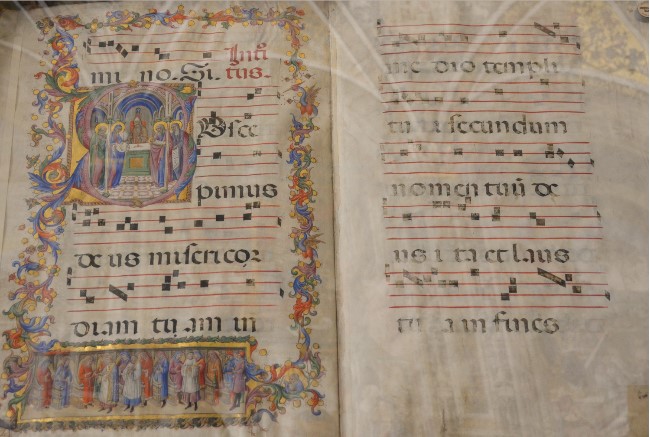 mi no. Si. Introi
tus.
SUsce
pimus
de us misericor
diam tu am in
me dio templi
tu i secundum
nomen tuū de
us i ta et laus
tu a in fines